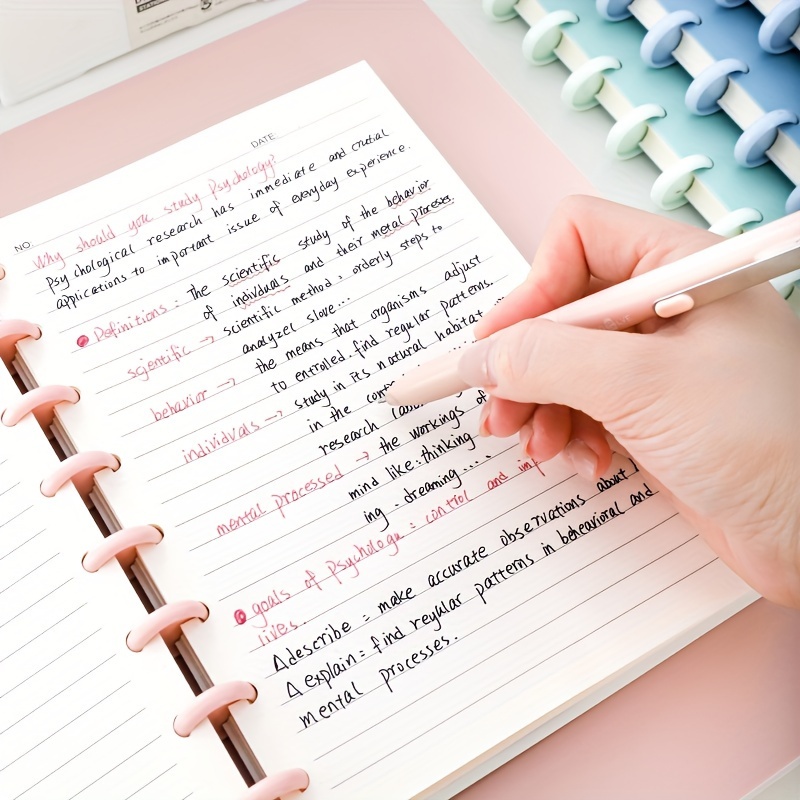 DATE
NO.
Why should you study Psychology?
Psychological research has immediate and crutial
applications to important issue of everyday experience.
Definitions: the scientific study of the behavior
of indivduals and their metal proceses.
scientific → scientific method: orderly steps to
analyzel slove...
behavior → the means that organisms adjust
to entrolled. find regular patterns.
individvals → study in its natural habitat
in the
research
mental processed → the workings of
mind like: thinking
ing. dreaming....
goals of Psychologe: control and
lives.
Δdescribe: make accurate observations about
Δ explain: find reyular patterns in beheavioral and
mental processes.